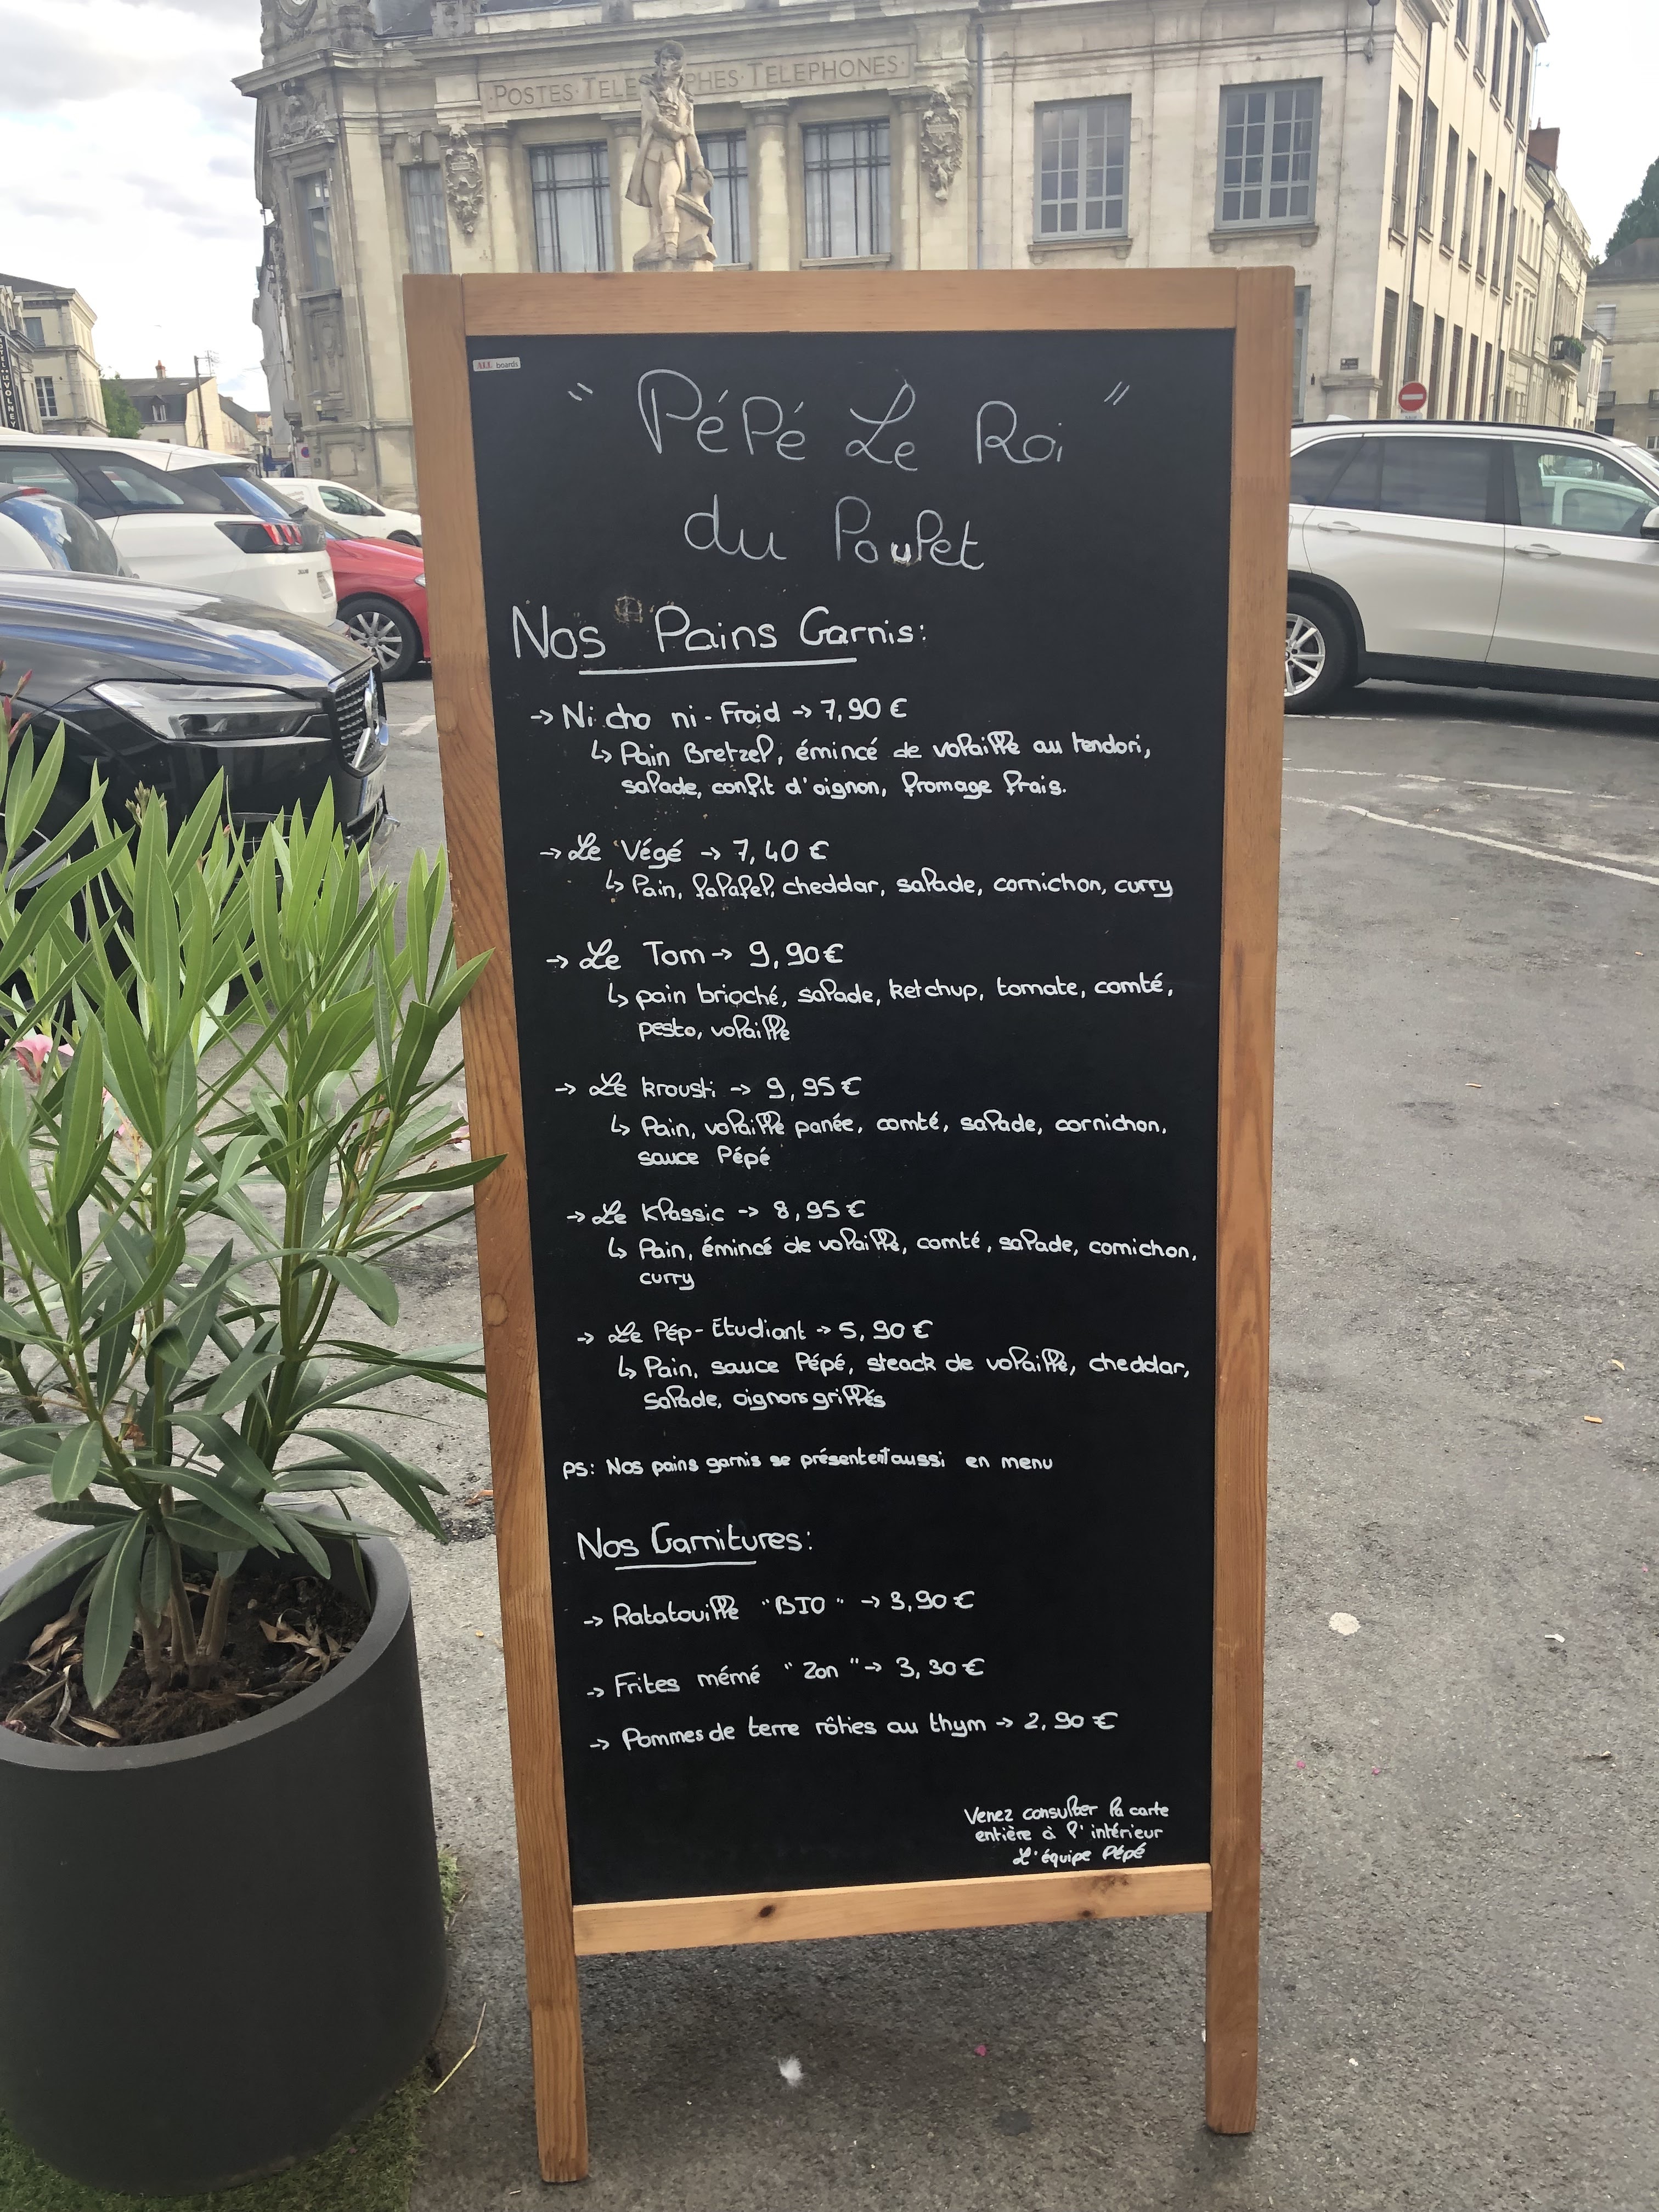 POSTES·TELEGRAPHES·TELEPHONES
HOTEL DU VOLNEY
ALL boards
" PéPé Le Roi "
du Poulet
Nos Pains Garnis:
→ Ni cho ni-Froid → 7,90 €
↳ Pain Bretzel, émincé de volaille au tendori,
salade, confit d'oignon, fromage frais.
→ Le Végé → 7,40 €
↳ Pain, falafel, cheddar, salade, cornichon, curry
→ Le Tom → 9,90€
↳ pain brioché, salade, ketchup, tomate, comté,
pesto, volaille
→ Le krousti → 9,95 €
↳ Pain, volaille panée, comté, salade, cornichon,
sauce Pépé
→ Le Klassic → 8,95 €
↳ Pain, émincé de volaille, comté, salade, cornichon,
curry
→ Le Pép-Etudiant → 5,90 €
↳ Pain, sauce Pépé, steack de volaille, cheddar,
salade, oignons grillés
PS: Nos pains garnis se présentent aussi en menu
Nos Garnitures:
→ Ratatouille "BIO" → 3,90 €
→ Frites mémé "Zon" → 3,30 €
→ Pommes de terre rôties au thym → 2,90 €
Venez consulter la carte
entière à l'intérieur
L'équipe Pépé